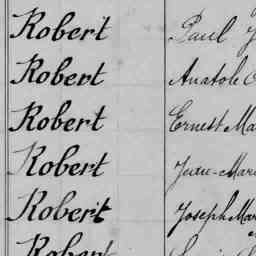 Robert Paul
Robert Anatole
Robert Ernest Ma
Robert Jean-Mari
Robert Joseph Mar
Robert